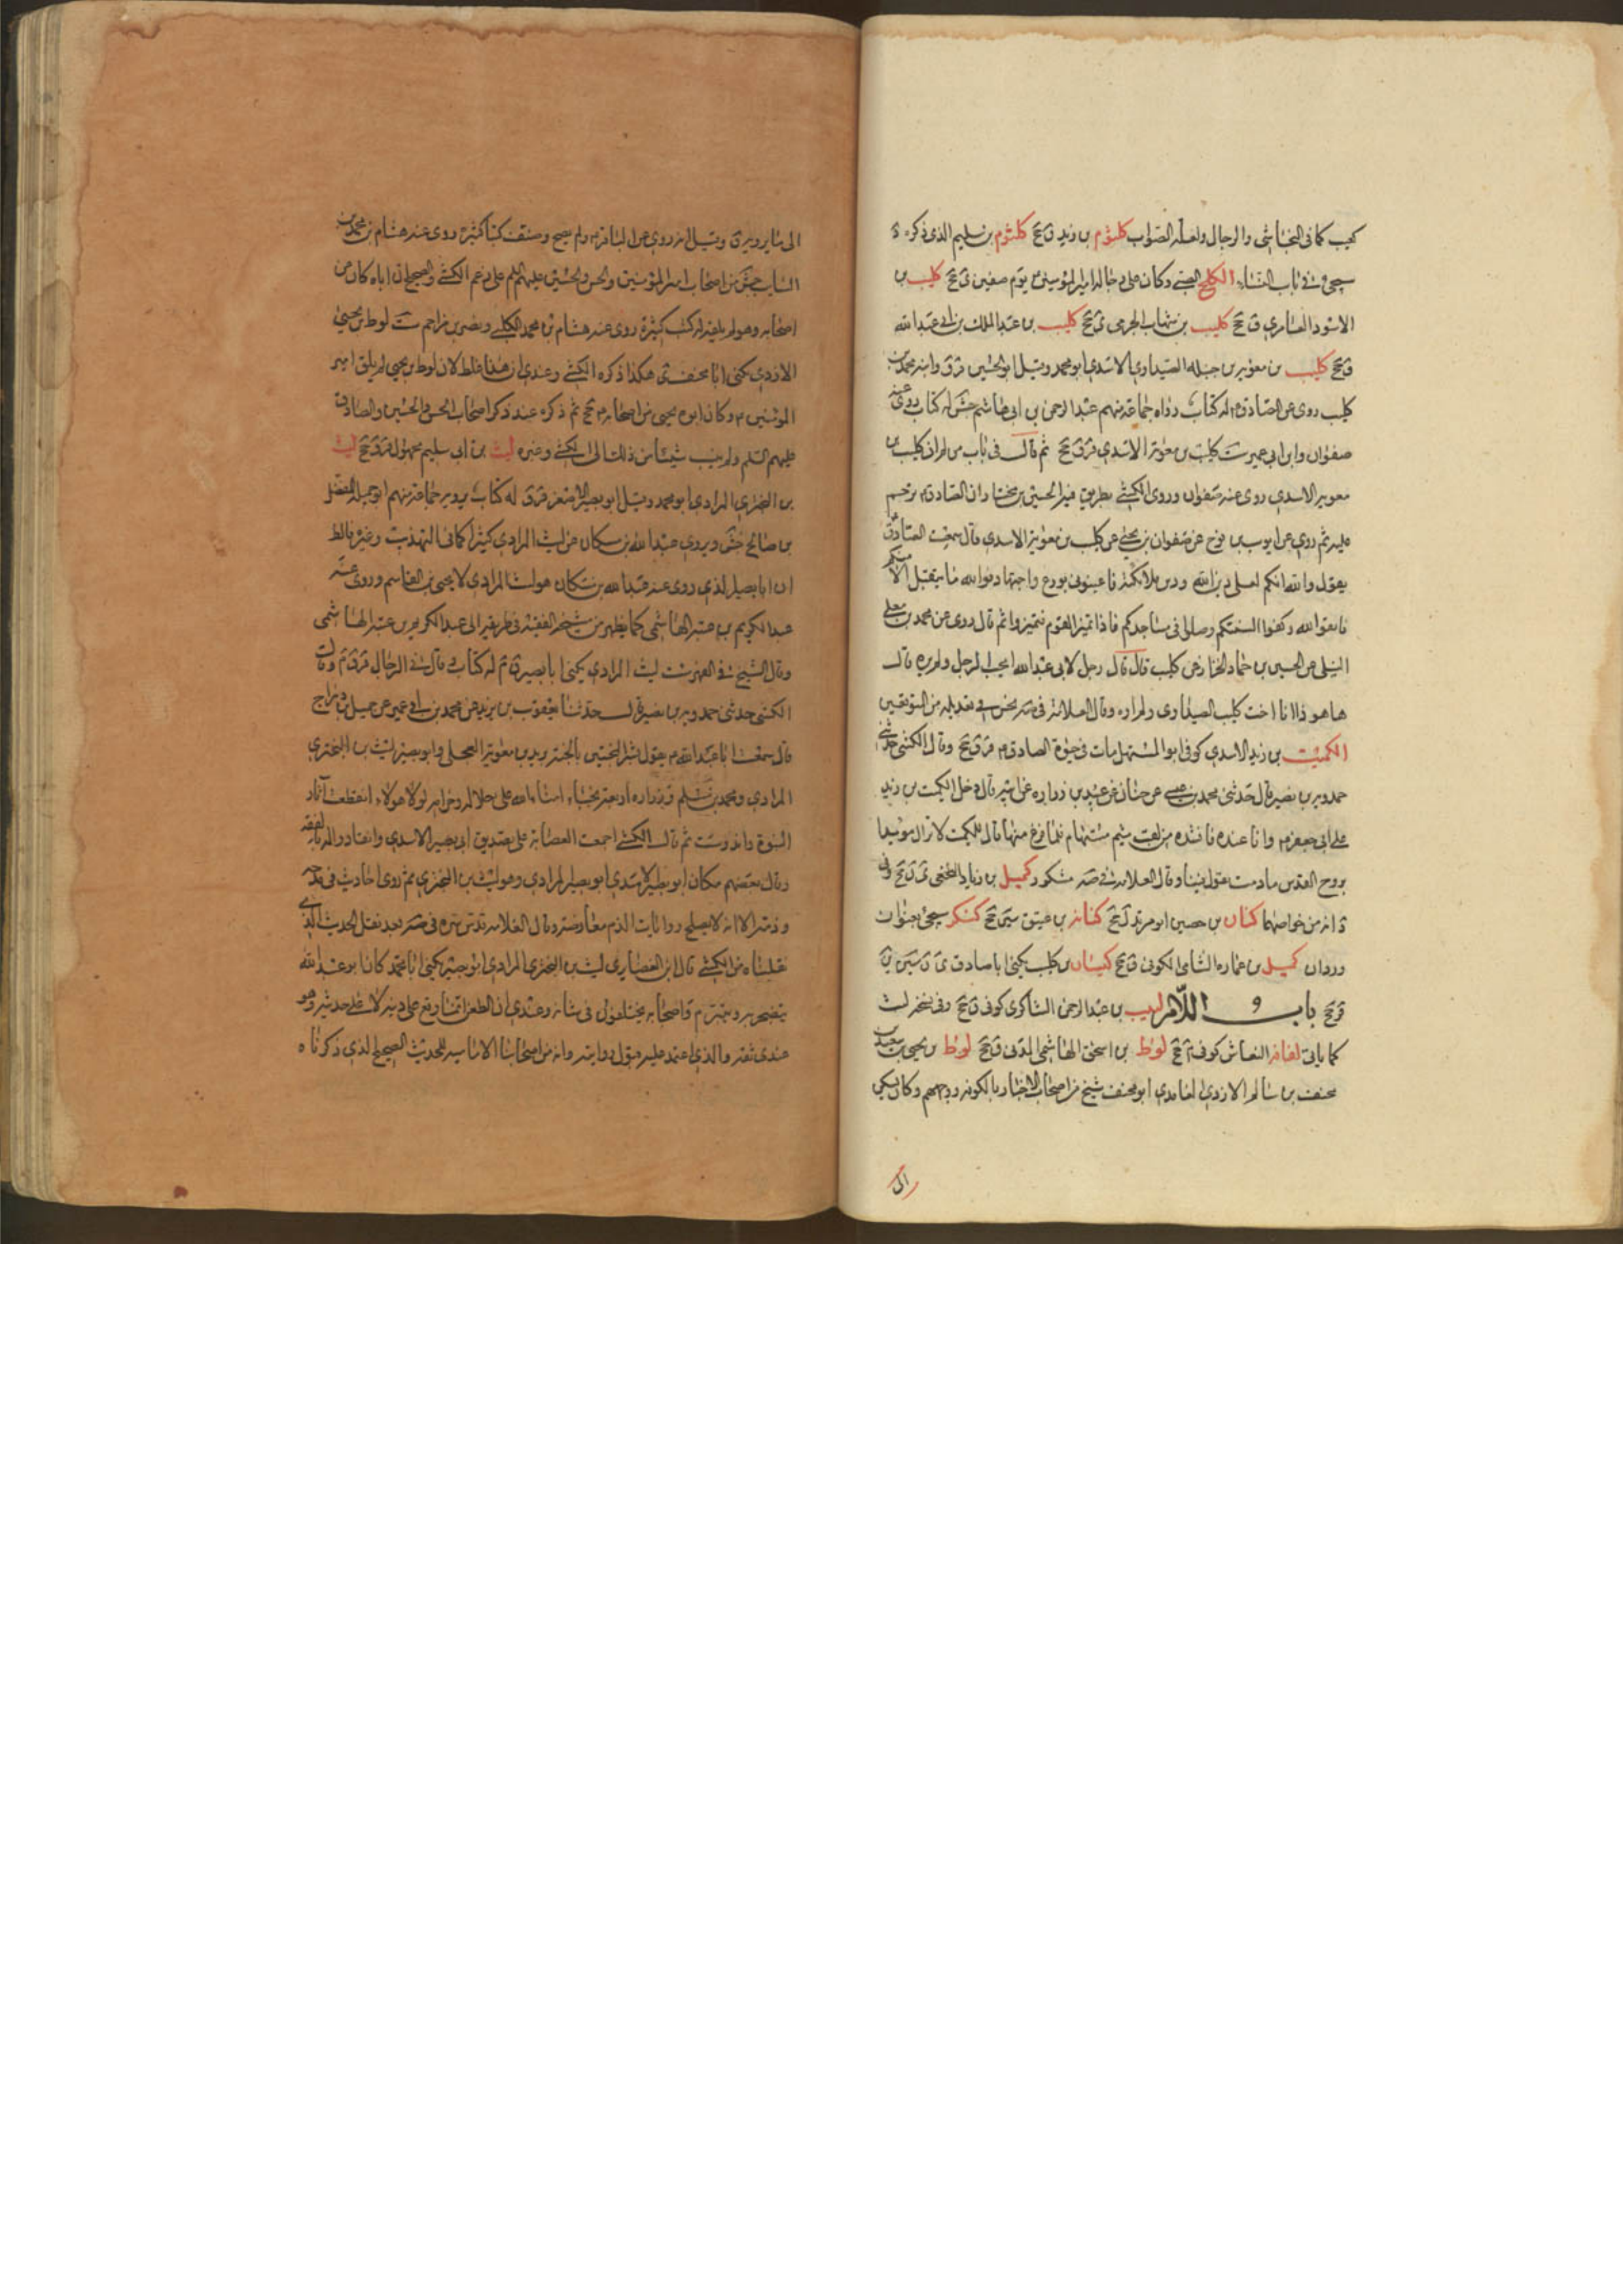 كما فى النجاشى والرجال ولعله الصواب كلثوم بن زيد ق جخ كلثوم بن سليم الذى ذكره
سيجى فى باب النساء الكلح الضبى وكان على رجالة امير المؤمنين يوم صفين ى جخ كليب بن
الاسود العامرى ق جخ كليب بن شهاب الجرمى ى جخ كليب بن عبد الملك بن ابى عبد الله
ق جخ كليب بن معوية بن جبلة الصيداوى الاسدى ابو محمد وقيل ابو الحسين قر ق وابنه محمد بن
كليب روى عن الصادق له كتاب رواه جماعة منهم عبد الرحمن بن ابى هاشم جش له كتاب روى عنه
صفوان وابن ابى عمير ست كليب بن معوية الاسدى قر ق جخ ثم قال فى باب من لم ان كليب بن
معوية الاسدى روى عنه صفوان وروى الكشى بطريق فيه الحسين بن مختار ان الصادق ترحم
عليه ثم روى عن ايوب بن نوح عن صفوان بن يحيى عن كليب بن معوية الاسدى قال سمعت الصادق
يقول والله انكم لعلى دين الله ودين ملائكته فاعينونى بورع واجتهاد فوالله ما يتقبل الا منكم
فاتقوا الله وكفوا السنتكم وصلوا فى مساجدكم فاذا تميز القوم فتميزوا ثم قال روى عن محمد بن معلى
النيلى عن الحسين بن حماد الخزاز عن كليب قال قال رجل لابى عبد الله ايحب الرجل ولم يره قال
ها هو ذا انا احب كليب الصيداوى ولم اره وقال العلامة فى صه نحن فى تعديله من المتوقفين
الكميت بن زيد الاسدى كوفى ابو المستهل مات فى حيوة الصادق قر ق جخ وقال الكشى حدثنى
حمدويه بن نصير قال حدثنى محمد بن عيسى عن حنان عن عبيد بن زرارة عن ابيه قال دخل الكميت بن زيد
على ابى جعفر وانا عنده فانشده من لقلب متيم مستهام فلما فرغ منها قال للكميت لا تزال مؤيدا
بروح القدس ما دمت تقول فينا وقال العلامة فى صه مشكور كميل بن زياد النخعى ى ن جخ وفى
د انه من خواصهما كناز بن حصين ابو مرثد ل جخ كنانة بن عتيق سين جخ كنكر سيجى بعنوان
وردان كميل بن عمارة الشامى الكوفى ق جخ كيسان بن كليب يكنى ابا صادق ى ن سين ين
قر جخ باب اللام لبيب بن عبد الرحمن الشاكرى كوفى ق جخ وفى نسخة ليث
كما ياتى لفافة النعاش كوفى جخ لوط بن اسحق الهاشمى المدنى ق جخ لوط بن يحيى بن سعيد بن
مخنف بن سالم الازدى الغامدى ابو مخنف شيخ من اصحاب الاخبار بالكوفة ووجههم وكان يسكن
الى
الى ما يرويه ق وقيل انه روى عن الباقر ولم يصح وصنف كتبا كثيرة روى عنه هشام بن محمد بن
السايب جش من اصحاب امير المؤمنين والحسن والحسين عليهم السلم على زعم الكشى والصحيح ان اباه كان من
اصحابه وهو لم يلقه له كتب كثيرة روى عنه هشام بن محمد الكلبى ونصر بن مزاحم ست لوط بن يحيى
الازدى يكنى ابا مخنف ى هكذا ذكره الكشى وعندى ان هذا غلط لان لوط بن يحيى لم يلق امير
المؤمنين وكان ابوه يحيى من اصحابه جخ ثم ذكره عند ذكر اصحاب الحسن والحسين والصادق
عليهم السلم ولم ينسب شيئا من ذلك الى الكشى وغيره ليث بن ابى سليم مجهول قر ق جخ ليث
بن البخترى المرادى ابو محمد وقيل ابو بصير الاصغر قر ق له كتاب يرويه جماعة منهم ابو جميلة المفضل
بن صالح جش ويروى عبد الله بن مسكان عن ليث المرادى كثيرا كما فى التهذيب وغيره فالظ
ان ابا بصير الذى روى عنه عبد الله بن مسكان هو ليث المرادى لا يحيى بن القاسم وروى عنه
عبد الكريم بن عتبة الهاشمى كما يظهر من مشيخة الفقيه فى طريقه الى عبد الكريم بن عتبة الهاشمى
وقال الشيخ فى الفهرست ليث المرادى يكنى ابا بصير ق م له كتاب وقال فى الرجال قر ق م وقال
الكشى حدثنى حمدويه بن نصير قال حدثنا يعقوب بن يزيد عن محمد بن ابى عمير عن جميل بن دراج
قال سمعت ابا عبد الله يقول بشر المخبتين بالجنة بريد بن معوية العجلى وابو بصير ليث بن البخترى
المرادى ومحمد بن مسلم وزرارة اربعة نجباء امناء الله على حلاله وحرامه لولا هولاء انقطعت آثار
النبوة واندرست ثم قال الكشى اجمعت العصابة على تصديق ابى بصير الاسدى وانقادوا له بالفقه
وقال بعضهم مكان ابو بصير الاسدى ابو بصير المرادى وهو ليث بن البخترى ثم روى احاديث فى مدحه
وذمه الا انه لا يصلح روايات الذم معارضة وقال العلامة قدس سره فى صه بعد نقل الحديث الذى
نقلناه من الكشى قال ابن الغضايرى ليث بن البخترى المرادى ابو بصير يكنى ابا محمد كان ابو عبد الله
يتضجر به ويتبرم واصحابه يختلفون فى شانه وعندى ان الطعن انما وقع على دينه لا على حديثه وهو
عندى ثقة والذى اعتمد عليه قبول روايته وانه من اصحابنا الامامية للحديث الصحيح الذى ذكرناه